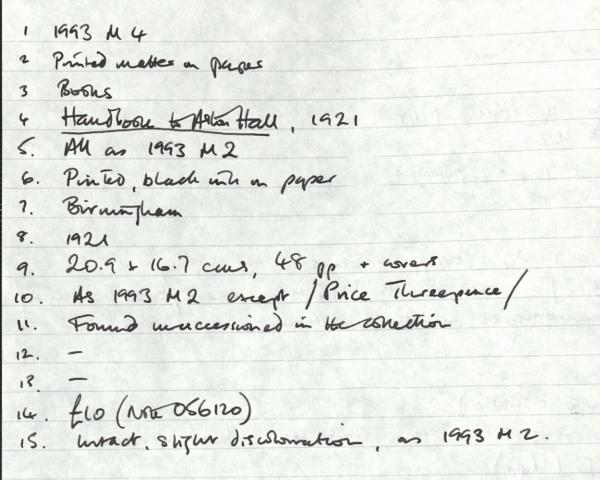 1 1993 M 4
2 Printed matter on paper
3 Books
4 Handbook to Aston Hall, 1921
5. All as 1993 M 2
6. Printed, black ink on paper
7. Birmingham
8. 1921
9. 20.9 x 16.7 cms, 48 pp + covers
10. As 1993 M 2 except /Price Threepence/
11. Found unaccessioned in the collection
12. —
13. —
14. £10 (Note 056120)
15. Intact, slight discolouration, as 1993 M 2.